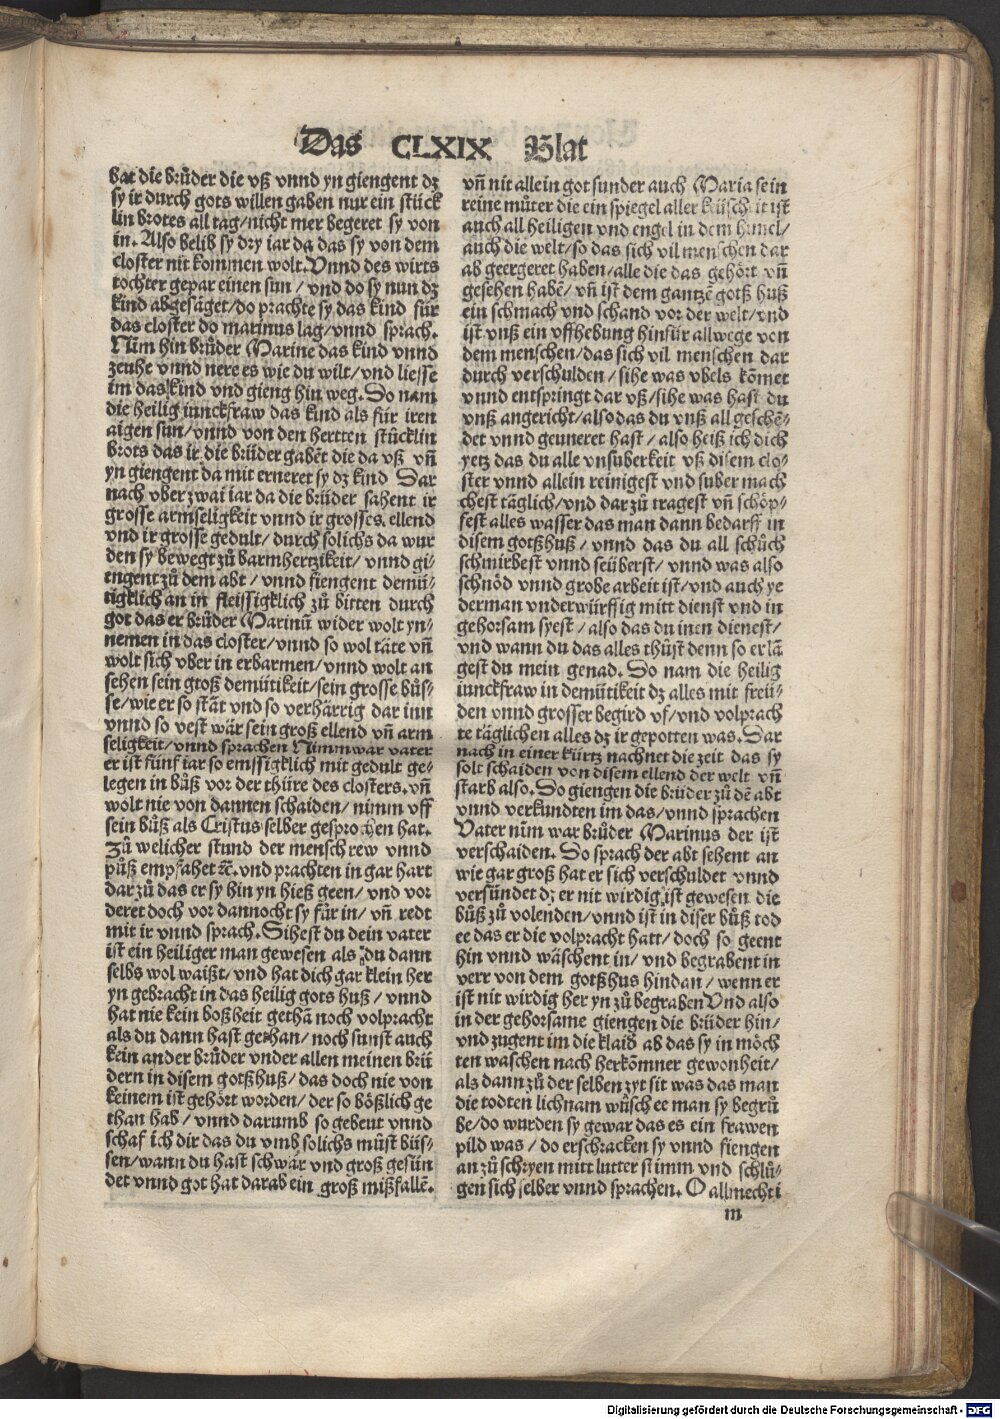 Das CLXIX Blat
bat die brůder die vß vnnd yn giengent dz
sy ir durch gots willen gaben nur ein stück
lin brotes all tag/nicht mer begeret sy von
in. Also belib sy dry iar da das sy von dem
closter nit kommen wolt. Vnnd des wirts
tochter gepar einen sun/ vnd do sy nun dz
kind abgesäget/do prachte sy das kind für
das closter do marinus lag/vnnd sprach.
Nim hin brůder Marine das kind vnnd
zeuhe vnnd nere es wie du wilt/vnd liesse
im das kind vnd gieng hin weg. Do nam
die heilig iunckfraw das kind als für iren
aigen sun/vnnd von den hertten stücklin
brots das ir die brüder gabēt die da vß vñ
yn giengent da mit erneret sy dz kind Dar
nach vber zwai iar da die brüder sahent ir
grosse armseligkeit vnnd ir grosses ellend
vnd ir grosse gedult/ durch solichs da wur
den sy bewegt zů barmhertzikeit/ vnnd gi-
engent zů dem abt/ vnnd fiengent demü-
tigklich an in fleissigklich zů bitten durch
got das er brůder Marinū wider wolt yn-
nemen in das closter/vnnd so wol täte vñ
wolt sich vber in erbarmen/vnnd wolt an
sehen sein groß demütikeit/sein grosse bůs-
se/wie er so stät vnd so verhärrig dar inn
vnnd so vest wär sein groß ellend vñ arm
seligkeit/vnnd sprachen Nimmwar vater
er ist fünf iar so emssigklich mit gedult ge-
legen in bůß vor der thüre des closters. vñ
wolt nie von dannen schaiden/nimm vff
sein bůß als Cristus selber gesprochen hat.
Zů welicher stund der mensch rew vnnd
půß empfahet ꝛc. vnd prachten in gar hart
dar zů das er sy hin yn hieß geen/vnd vor
deret doch vor dannocht sy für in/vñ redt
mit ir vnnd sprach. Sihest du dein vater
ist ein heiliger man gewesen als du dann
selbs wol waißt/vnd hat dich gar klein her
yn gebracht in das heilig gots huß/vnnd
hat nie kein boßheit gethā noch volpracht
als du dann hast gethan/noch sunst auch
kein ander brůder vnder allen meinen brü
dern in disem gotßhuß/das doch nie von
keinem ist gehört worden/der so bößlich ge
than hab/vnnd darumb so gebeut vnnd
schaf ich dir das du vmb solichs můst büs-
sen/wann du hast schwär vnd groß gesün
det vnnd got hat darab ein groß mißfallē.
vñ nit allein got sunder auch Maria sein
reine můter die ein spiegel aller keüscheit ist
auch all heiligen vnd engel in dem himel/
auch die welt/so das sich vil menschen dar
ab geergeret haben/alle die das gehört vñ
gesehen habē/vñ ist dem gantzē gotß huß
ein schmach vnd schand vor der welt/vnd
ist vnß ein vffhebung hinfür allwege von
dem menschen/das sich vil menschen dar
durch verschulden/sihe was vbels kömet
vnnd entspringt dar vß/sihe was hast du
vnß angericht/also das du vnß all geschē-
det vnnd geuneret hast/also heiß ich dich
yetz das du alle vnsuberkeit vß disem clo-
ster vnnd allein reinigest vnd suber mach
chest täglich/vnd dar zů tragest vñ schöp-
fest alles wasser das man dann bedarff in
disem gotßhuß/ vnnd das du all schůch
schmirbest vnnd seüberst/vnnd was also
schnöd vnnd grobe arbeit ist/vnd auch ye
derman vnderwürffig mitt dienst vnd in
gehorsam syest/also das du inen dienest/
vnd wann du das alles thůst denn so erlā
gest du mein genad. Do nam die heilig
iunckfraw in demütikeit dz alles mit freü-
den vnnd grosser begird vf/vnd volprach
te täglichen alles dz ir gepotten was. Dar
nach in einer kürtz nachnet die zeit das sy
solt schaiden von disem ellend der welt vñ
starb also. Do giengen die brüder zů dē abt
vnnd verkundten im das/vnnd sprachen
Vater nim war brůder Marinus der ist
verschaiden. Do sprach der abt sehent an
wie gar groß hat er sich verschuldet vnnd
versündet dz er nit wirdig ist gewesen die
bůß zů volenden/vnnd ist in diser bůß tod
ee das er die volpracht hatt/doch so geent
hin vnnd wäschent in/vnd begrabent in
verr von dem gotßhus hindan/wenn er
ist nit wirdig her yn zů begraben Vnd also
in der gehorsame giengen die brüder hin/
vnd zugent im die klaid ab das sy in möch
ten waschen nach herkōmner gewonheit/
als dann zů der selben zyt sit was das man
die todten lichnam wůsch ee man sy begrů
be/do wurden sy gewar das es ein frawen
pild was/do erschracken sy vnnd fiengen
an zů schryen mitt lutter stimm vnd schlů-
gen sich selber vnnd sprachen. O allmechti
m
Digitalisierung gefördert durch die Deutsche Forschungsgemeinschaft - DFG